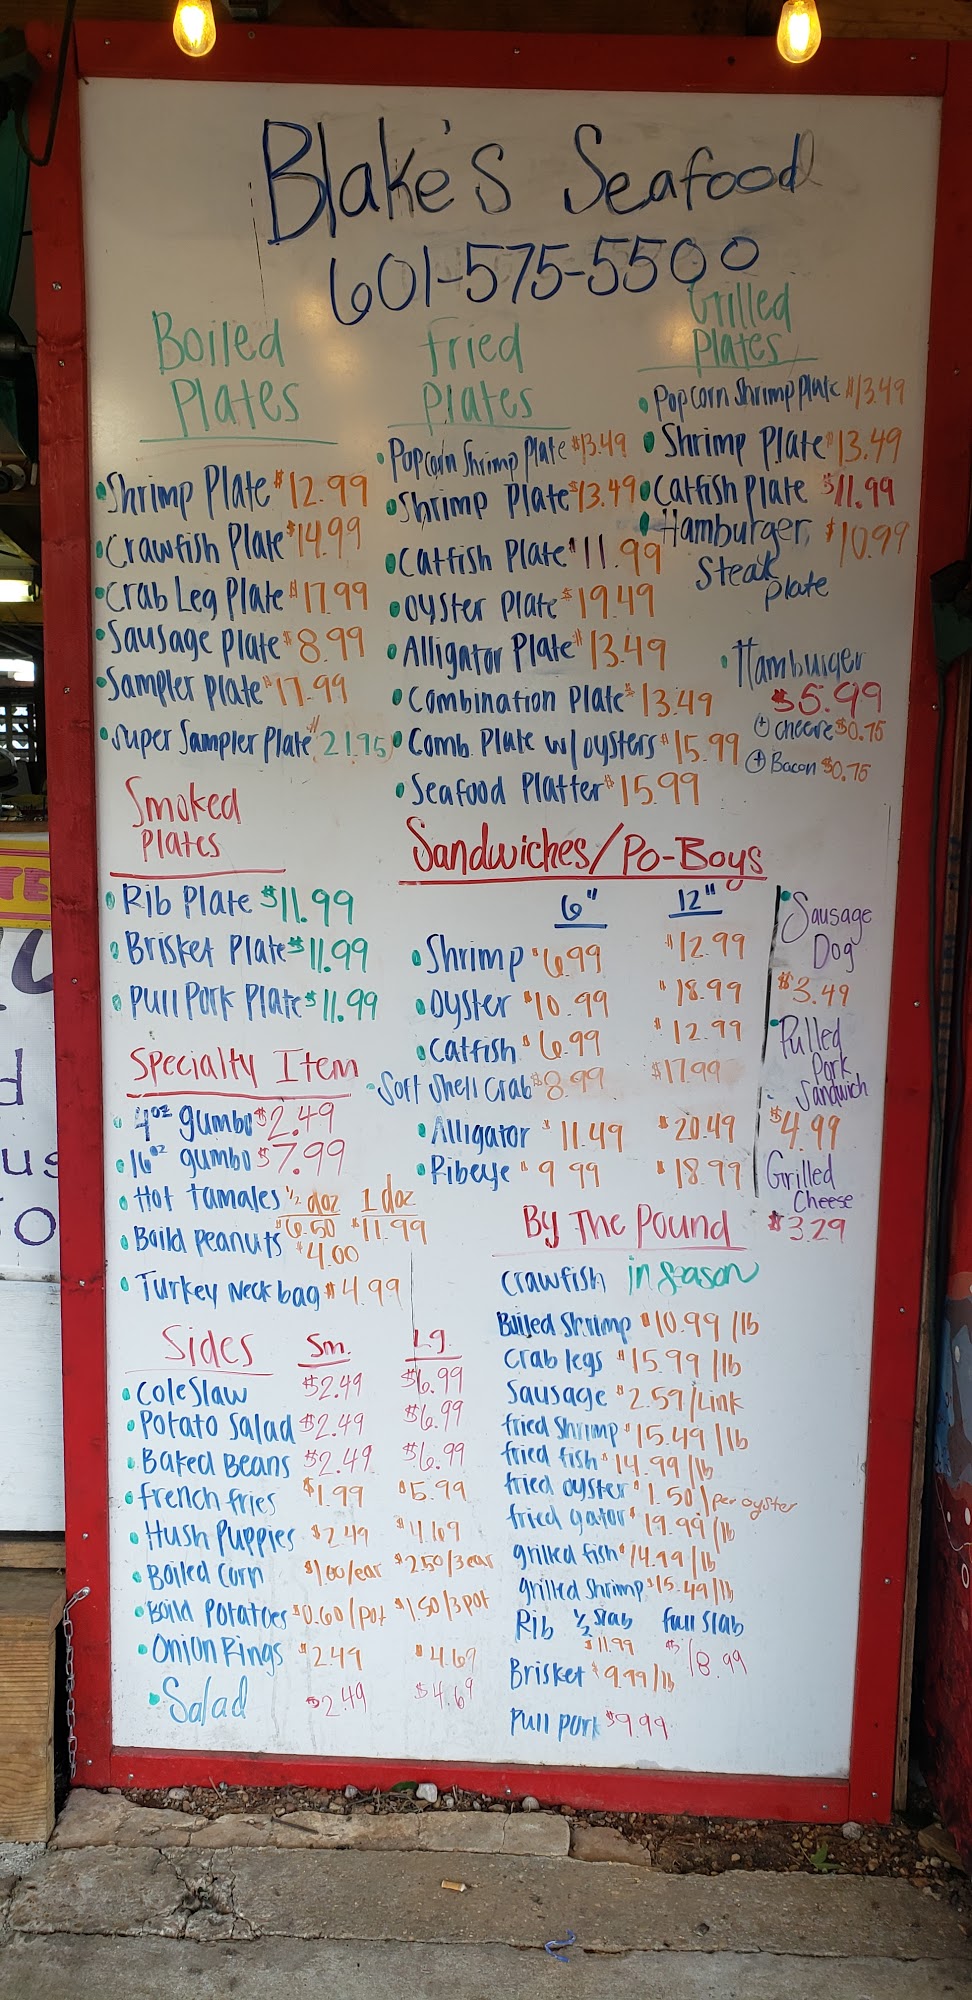 Blake's Seafood
601-575-5500
Boiled
Plates
Shrimp Plate $12.99
Crawfish Plate $14.99
Crab Leg Plate $17.99
Sausage Plate $8.99
Sampler Plate $17.99
Super Sampler Plate $21.95
Fried
Plates
Popcorn Shrimp Plate $13.49
Shrimp Plate $13.49
Catfish Plate $11.99
Oyster Plate $19.49
Alligator Plate $13.49
Combination Plate $13.49
Comb. Plate w/oysters $15.99
Seafood Platter $15.99
Grilled
Plates
Popcorn Shrimp Plate $13.49
Shrimp Plate $13.49
Catfish Plate $11.99
Hamburger $10.99
Steak
Plate
Hamburger
$5.99
+ cheese $0.75
+ Bacon $0.75
Smoked
Plates
Rib Plate $11.99
Brisket Plate $11.99
Pull Pork Plate $11.99
Sandwiches/Po-Boys
6" 12"
Shrimp $6.99 $12.99
Oyster $10.99 $18.99
Catfish $6.99 $12.99
Soft Shell Crab $8.99 $17.99
Alligator $11.49 $20.49
Ribeye $9.99 $18.99
Sausage
Dog
$3.49
Pulled
Pork
Sandwich
$4.99
Grilled
Cheese
$3.29
Specialty Item
4oz gumbo $2.49
16oz gumbo $7.99
Hot tamales 1/2 doz 1 doz
$6.50 $11.99
Boild Peanuts $4.00
Turkey Neck bag $4.99
Sides Sm. Lg.
Cole Slaw $2.49 $6.99
Potato Salad $2.49 $6.99
Baked Beans $2.49 $6.99
French fries $1.99 $5.99
Hush Puppies $2.49 $4.69
Boiled Corn $1.00/ear $2.50/3 ear
Boild Potatoes $0.60/pot $1.50/3 pot
Onion Rings $2.49 $4.69
Salad $2.49 $4.69
By The Pound
Crawfish in season
Boiled Shrimp $10.99/lb
Crab legs $15.99/lb
Sausage $2.59/Link
fried Shrimp $15.49/lb
fried fish $14.99/lb
fried oyster $1.50/per oyster
fried gator $19.99/lb
grilled fish $14.99/lb
grilled Shrimp $15.49/lb
Rib 1/2 Slab full Slab
$11.99 $18.99
Brisket $9.99/lb
Pull pork $9.99